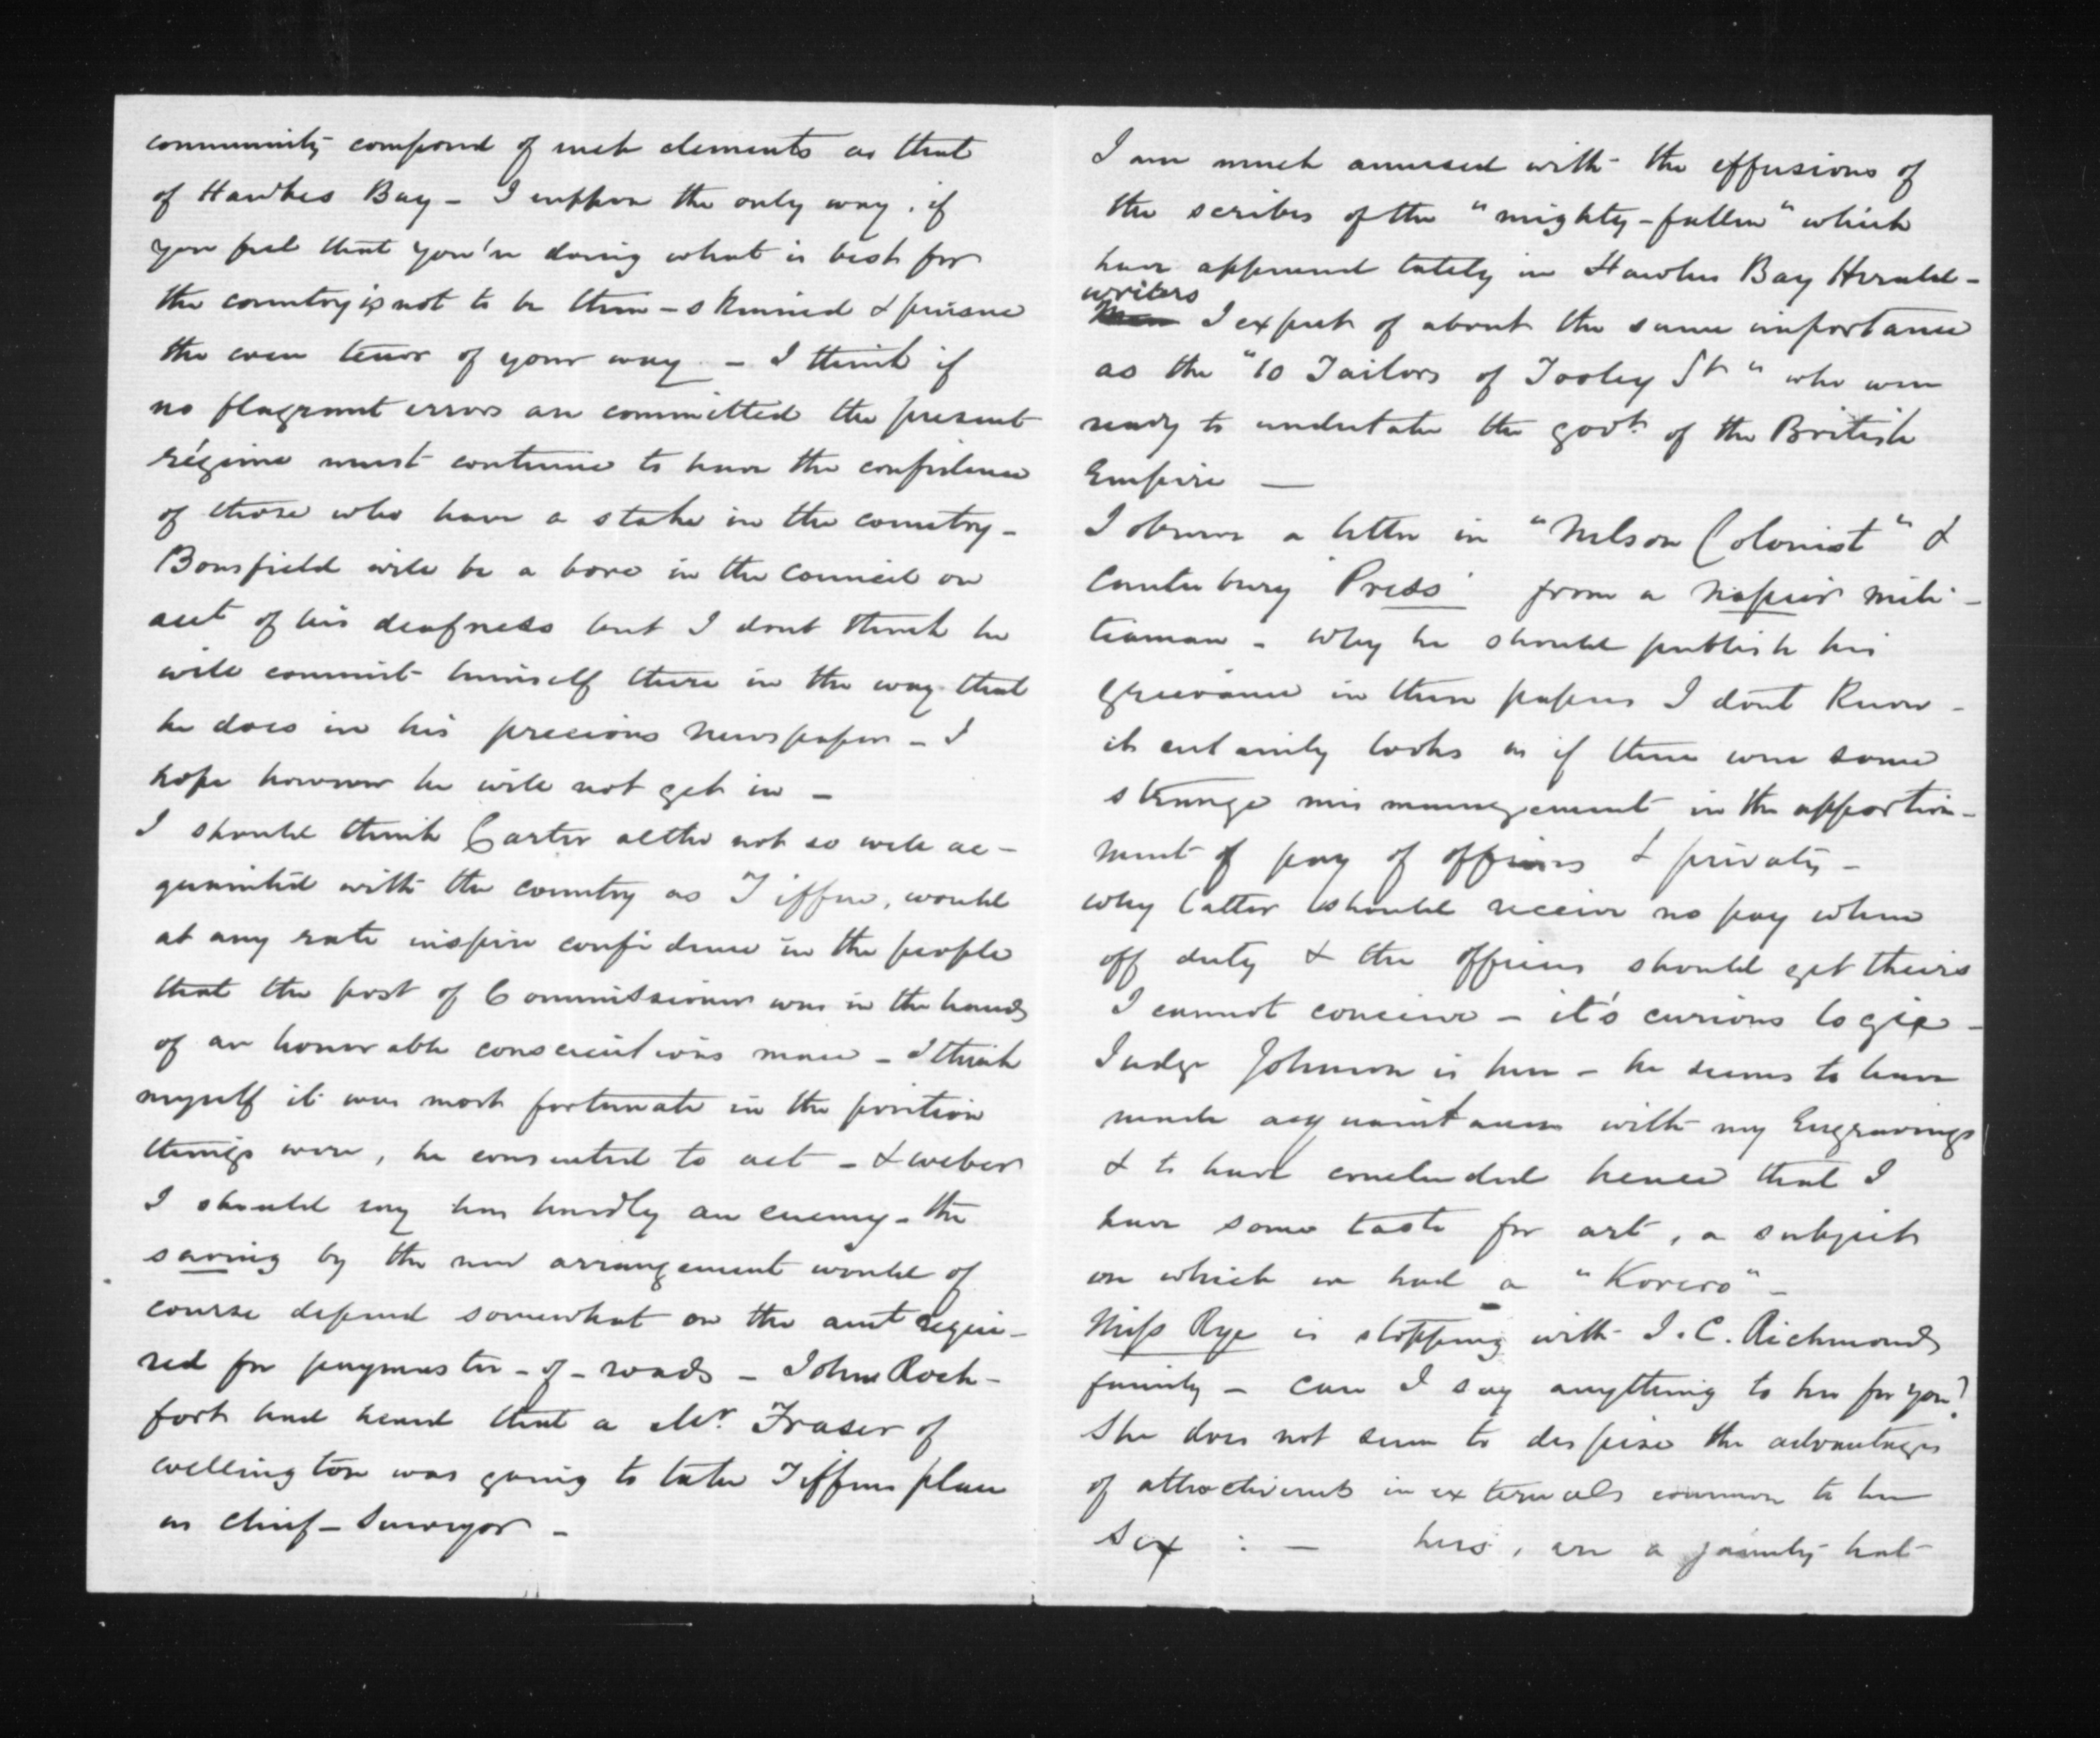 community composed of such elements as that
of Hawkes Bay - I suppose the only way, if
you feel that you're doing what is best for
the country is not to be thin-skinned & pursue
the even tenor of your way - I think if
no flagrant errors are committed the present
régime must continue to have the confidence
of those who have a stake in the country -
Bousfield will be a bore in the Council on
acct of his deafness but I dont think he
will commit himself there in the way that
he does in his precious newspaper - I
hope however he will not get in -
I should think Carter altho not so well ac-
quainted with the country as Tiffen, would
at any rate inspire confidence in the people
that the post of Commissioner was in the hands
of an honorable conscientious man - I think
myself it was most fortunate in the position
things were, he consented to act - & Weber
I should say has hardly an enemy - the
saving by the new arrangement would of
course depend somewhat on the amt requi-
red for paymaster-of-roads - John Roch-
fort had heard that a Mr. Fraser of
Wellington was going to take Tiffens place
as chief-surveyor -
I am much amused with the effusions of
the scribes of the "mighty-fallen" which
have appeared lately in Hawkes Bay Herald -
writers
I expect of about the same importance
as the "10 Tailors of Tooley St" who were
ready to undertake the govt. of the British
Empire —
I observe a letter in "Nelson Colonist" &
Canterbury 'Press' from a Napier mili-
tiaman - why he should publish his
grievance in these papers I dont know -
it certainly looks as if there were some
strange mismanagement in the apportion-
ment of pay of officers & privates -
why latter should receive no pay when
off duty & the officers should get theirs
I cannot conceive - it's curious logic -
Judge Johnson is here - he seems to have
made acquaintance with my Engravings
& to have concluded hence that I
have some taste for art, a subject
on which we had a "Korero" -
Miss Rye is stopping with J.C. Richmonds
family - can I say anything to her for you?
She does not seem to despise the advantages
of attractiveness in externals common to her
sex : — hers, are a jaunty hat